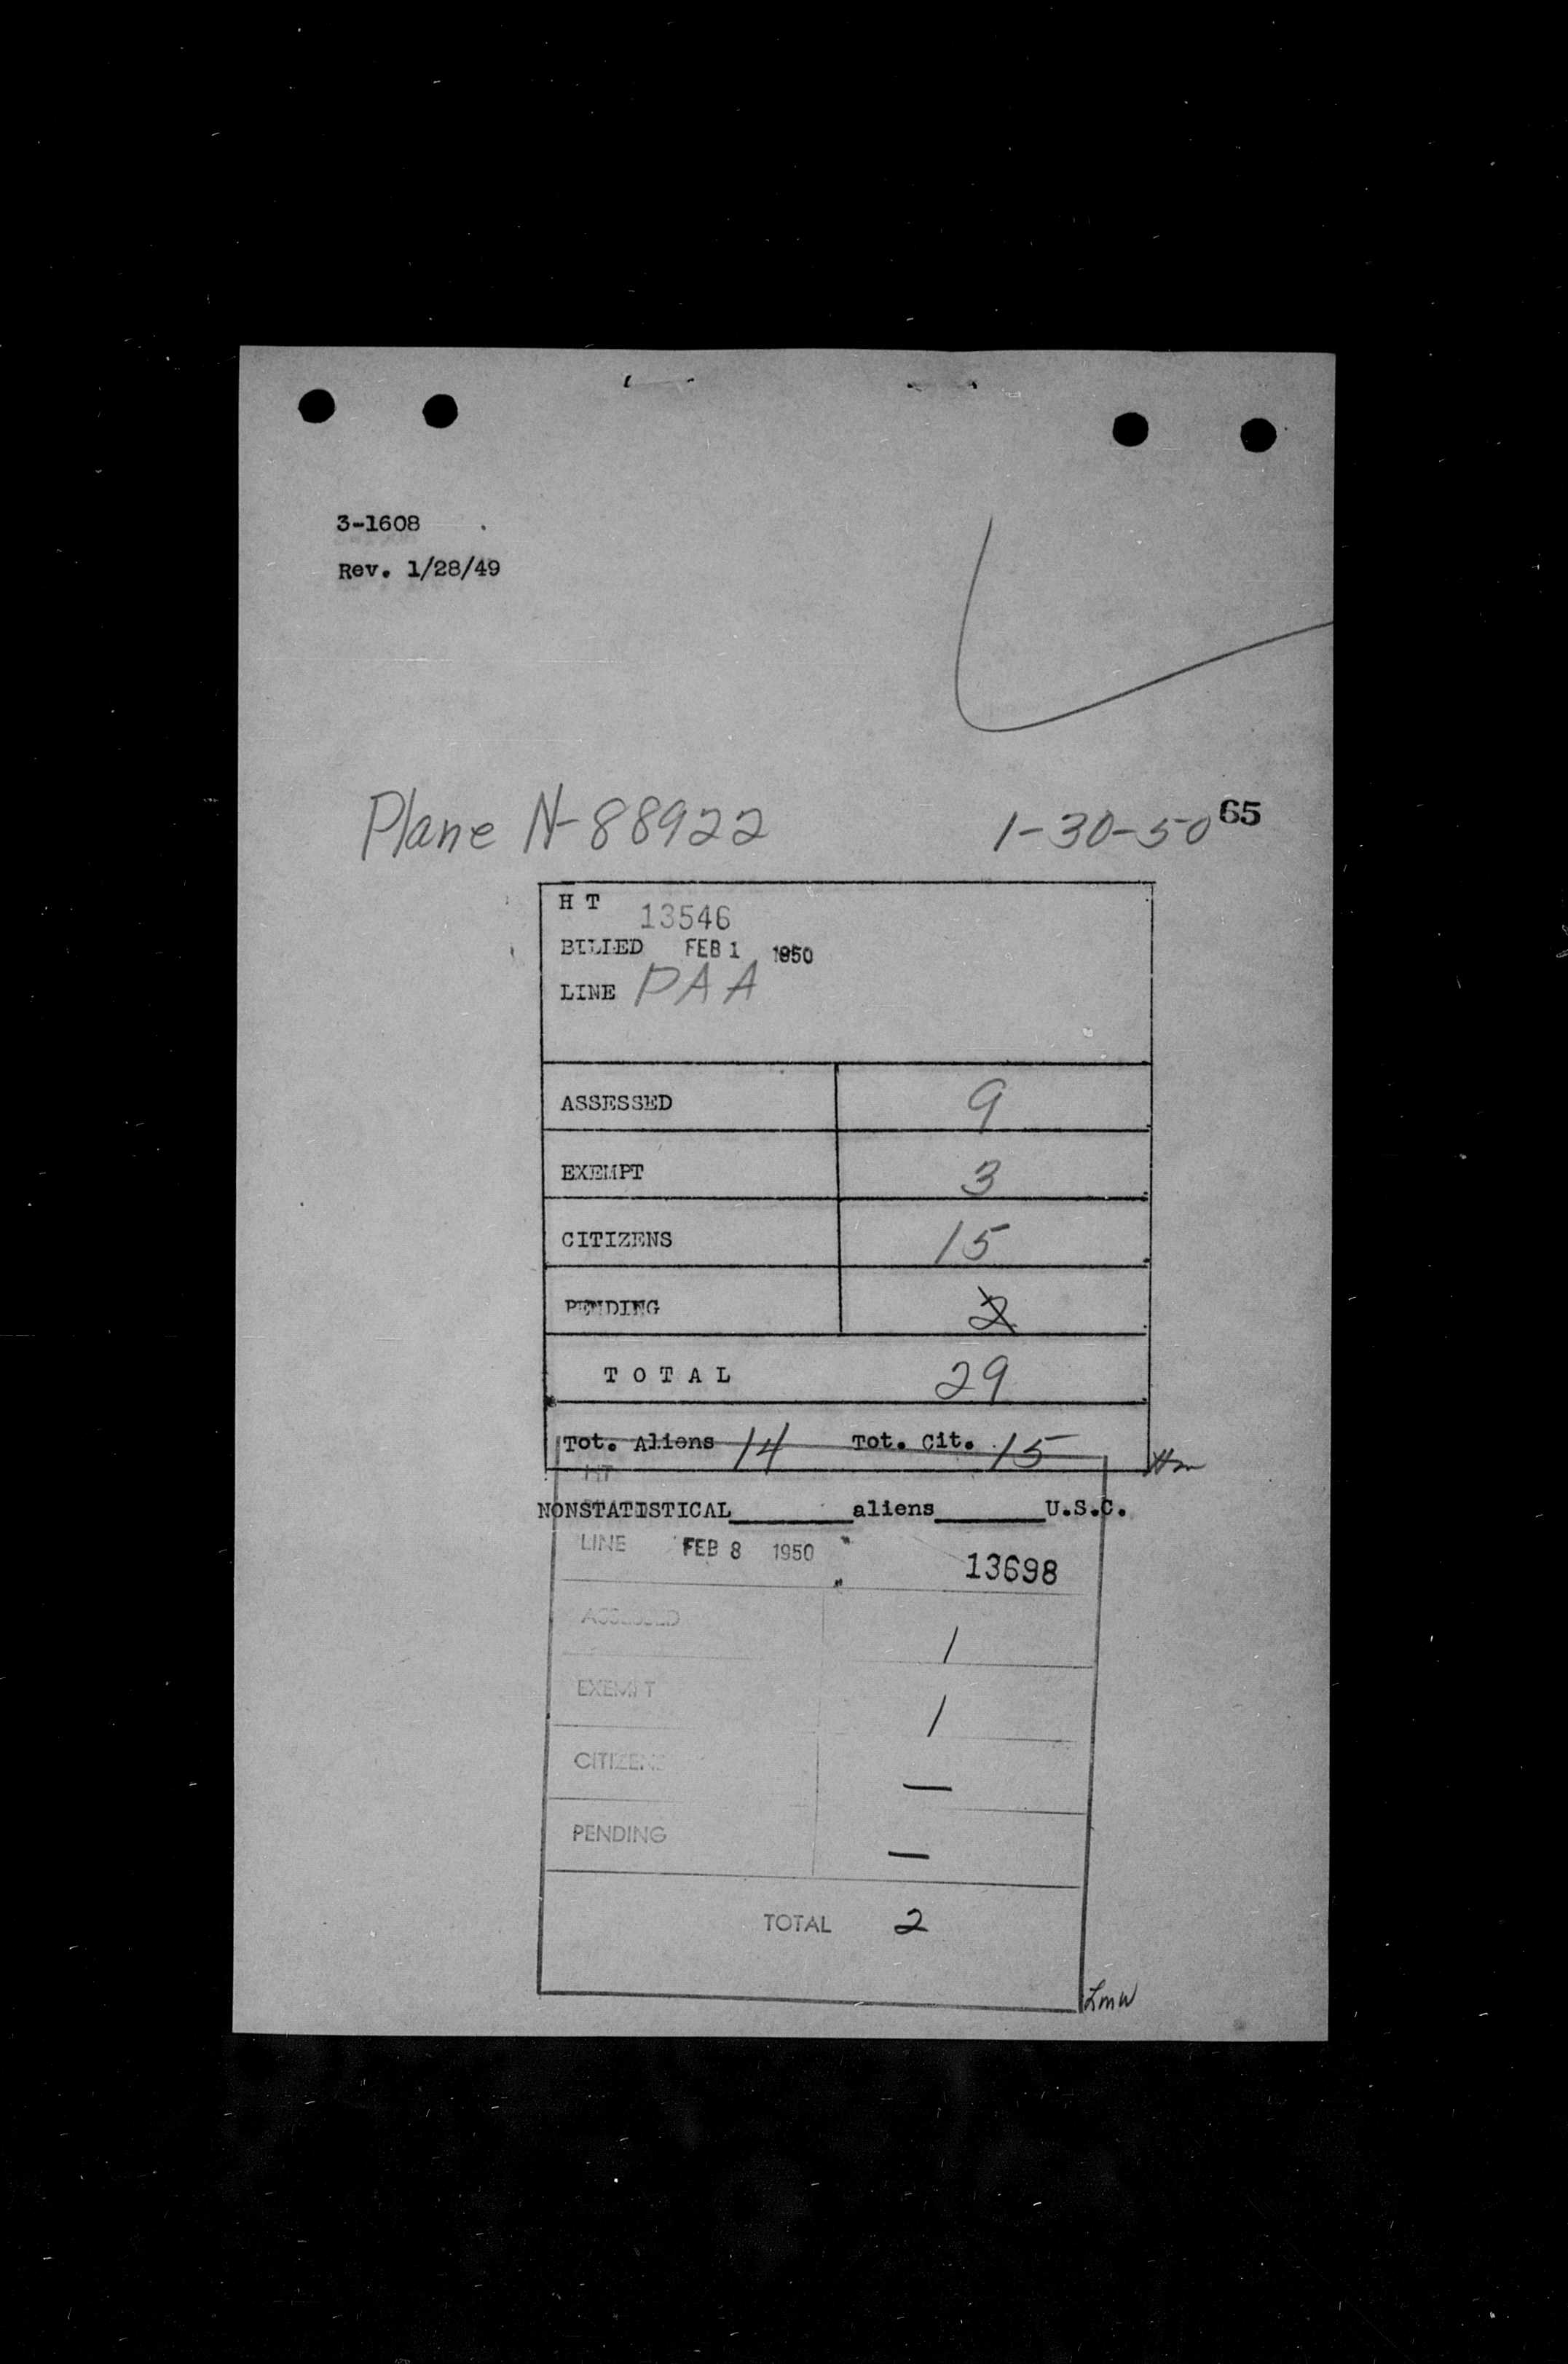 3-1608
Rev. 1/28/49
Plane N-88922 1-30-50 65
H T 13546
BILLED FEB 1 1950
LINE PAA
ASSESSED 9
EXEMPT 3
CITIZENS 15
PENDING 2
T O T A L 29
Tot. Aliens 14 Tot. Cit. 15
HT
NONSTATISTICAL______aliens______U.S.C.
LINE FEB 8 1950 13698
ASSESSED 1
EXEMPT 1
CITIZENS —
PENDING —
TOTAL 2
LMW